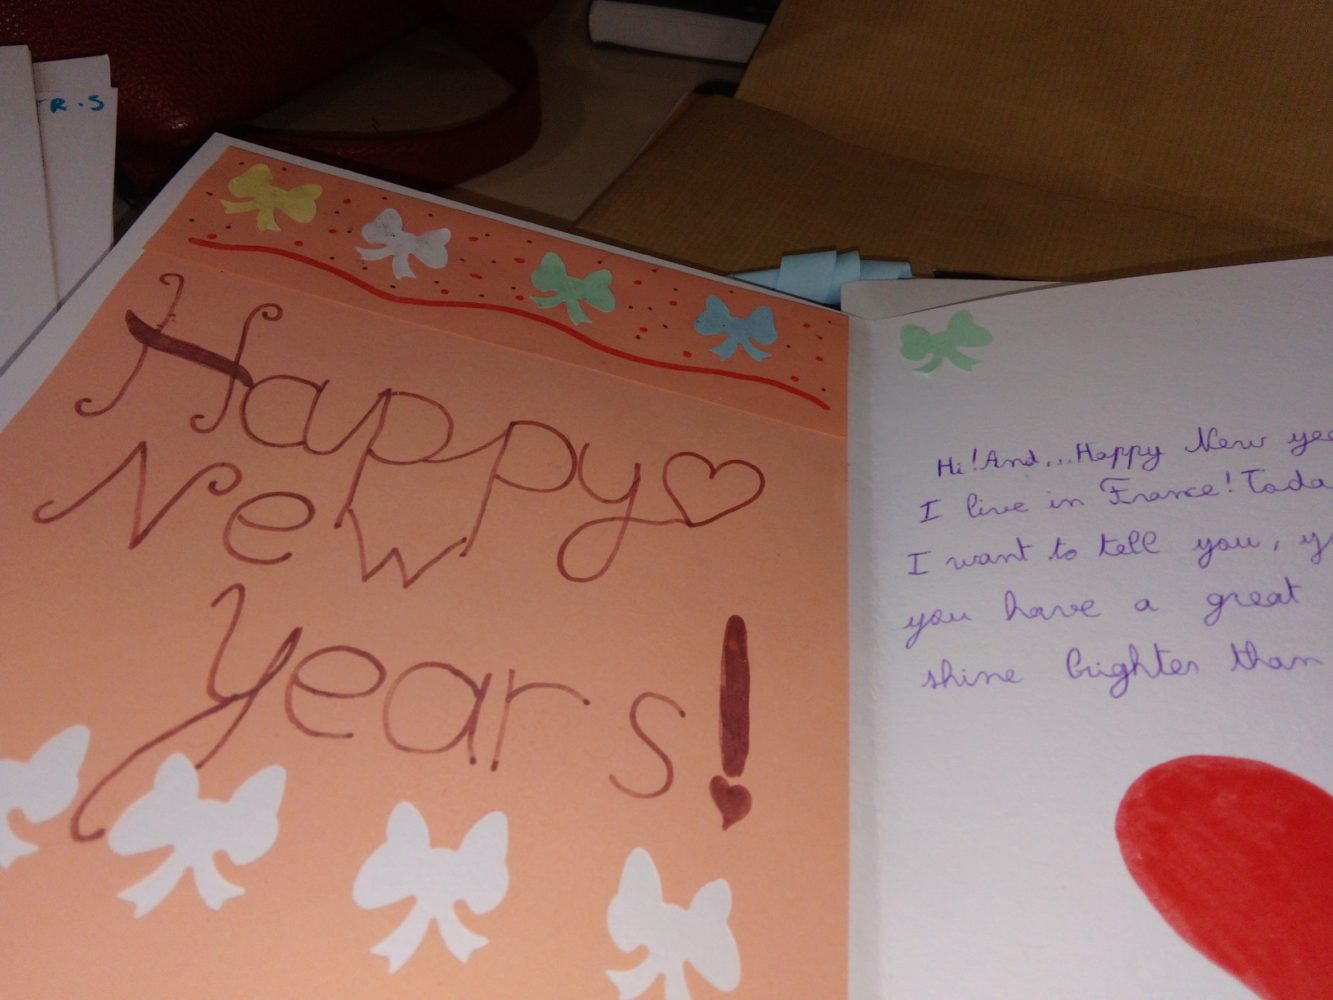 R.S
Happy
New
years!
Hi! And...Happy New yea
I live in France! Toda
I want to tell you, y
you have a great
shine brighter than